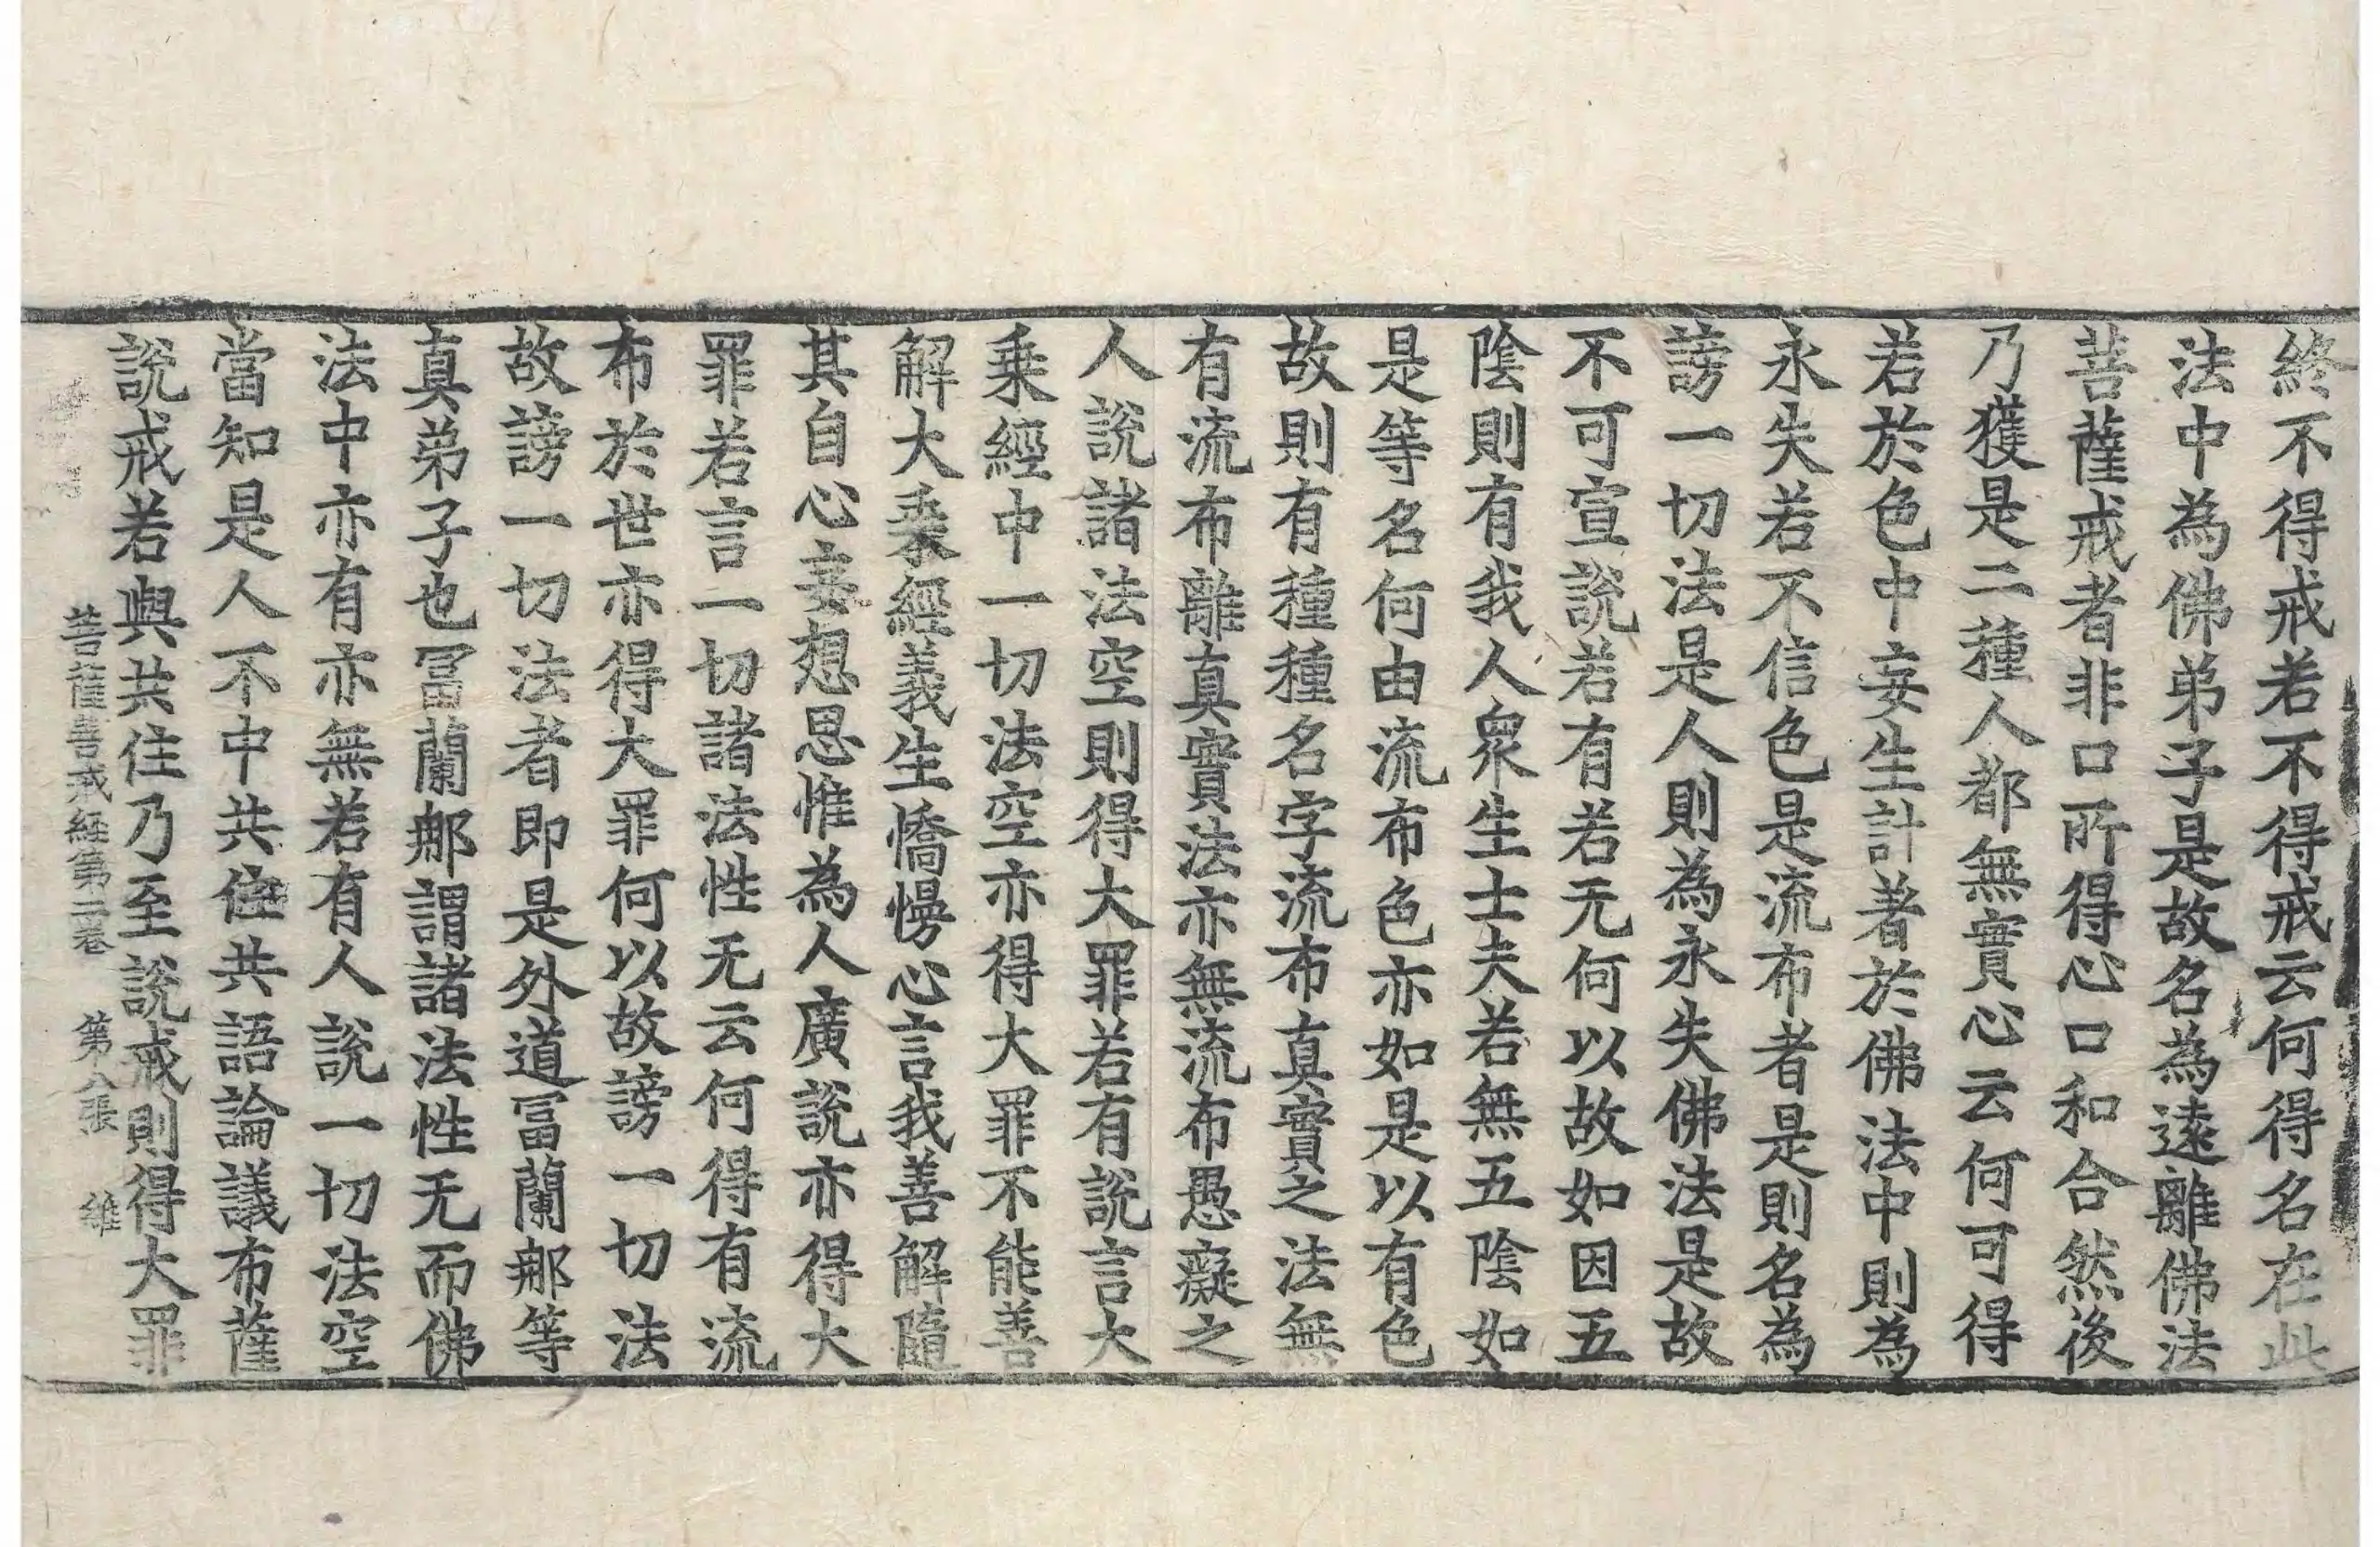 終不得戒若不得戒云何得名在此
法中為佛弟子是故名為遠離佛法
菩薩戒者非口所得心口和合然後
乃獲是二種人都無實心云何可得
若於色中妄生計著於佛法中則為
永失若不信色是流布者是則名為
謗一切法是人則為永失佛法是故
不可宣說若有若无何以故如因五
陰則有我人衆生士夫若無五陰如
是等名何由流布色亦如是以有色
故則有種種名字流布真實之法無
有流布離真實法亦無流布愚癡之
人說諸法空則得大罪若有說言大
乗經中一切法空亦得大罪不能善
解大乗經義生憍慢心言我善解隨
其自心妄想思惟為人廣說亦得大
罪若言一切諸法性无云何得有流
布於世亦得大罪何以故謗一切法
故謗一切法者即是外道冨蘭那等
真弟子也冨蘭那謂諸法性无而佛
法中亦有亦無若有人說一切法空
當知是人不中共住共語論議布薩
說戒若與共住乃至說戒則得大罪
菩薩善戒經第二卷 第八張 維